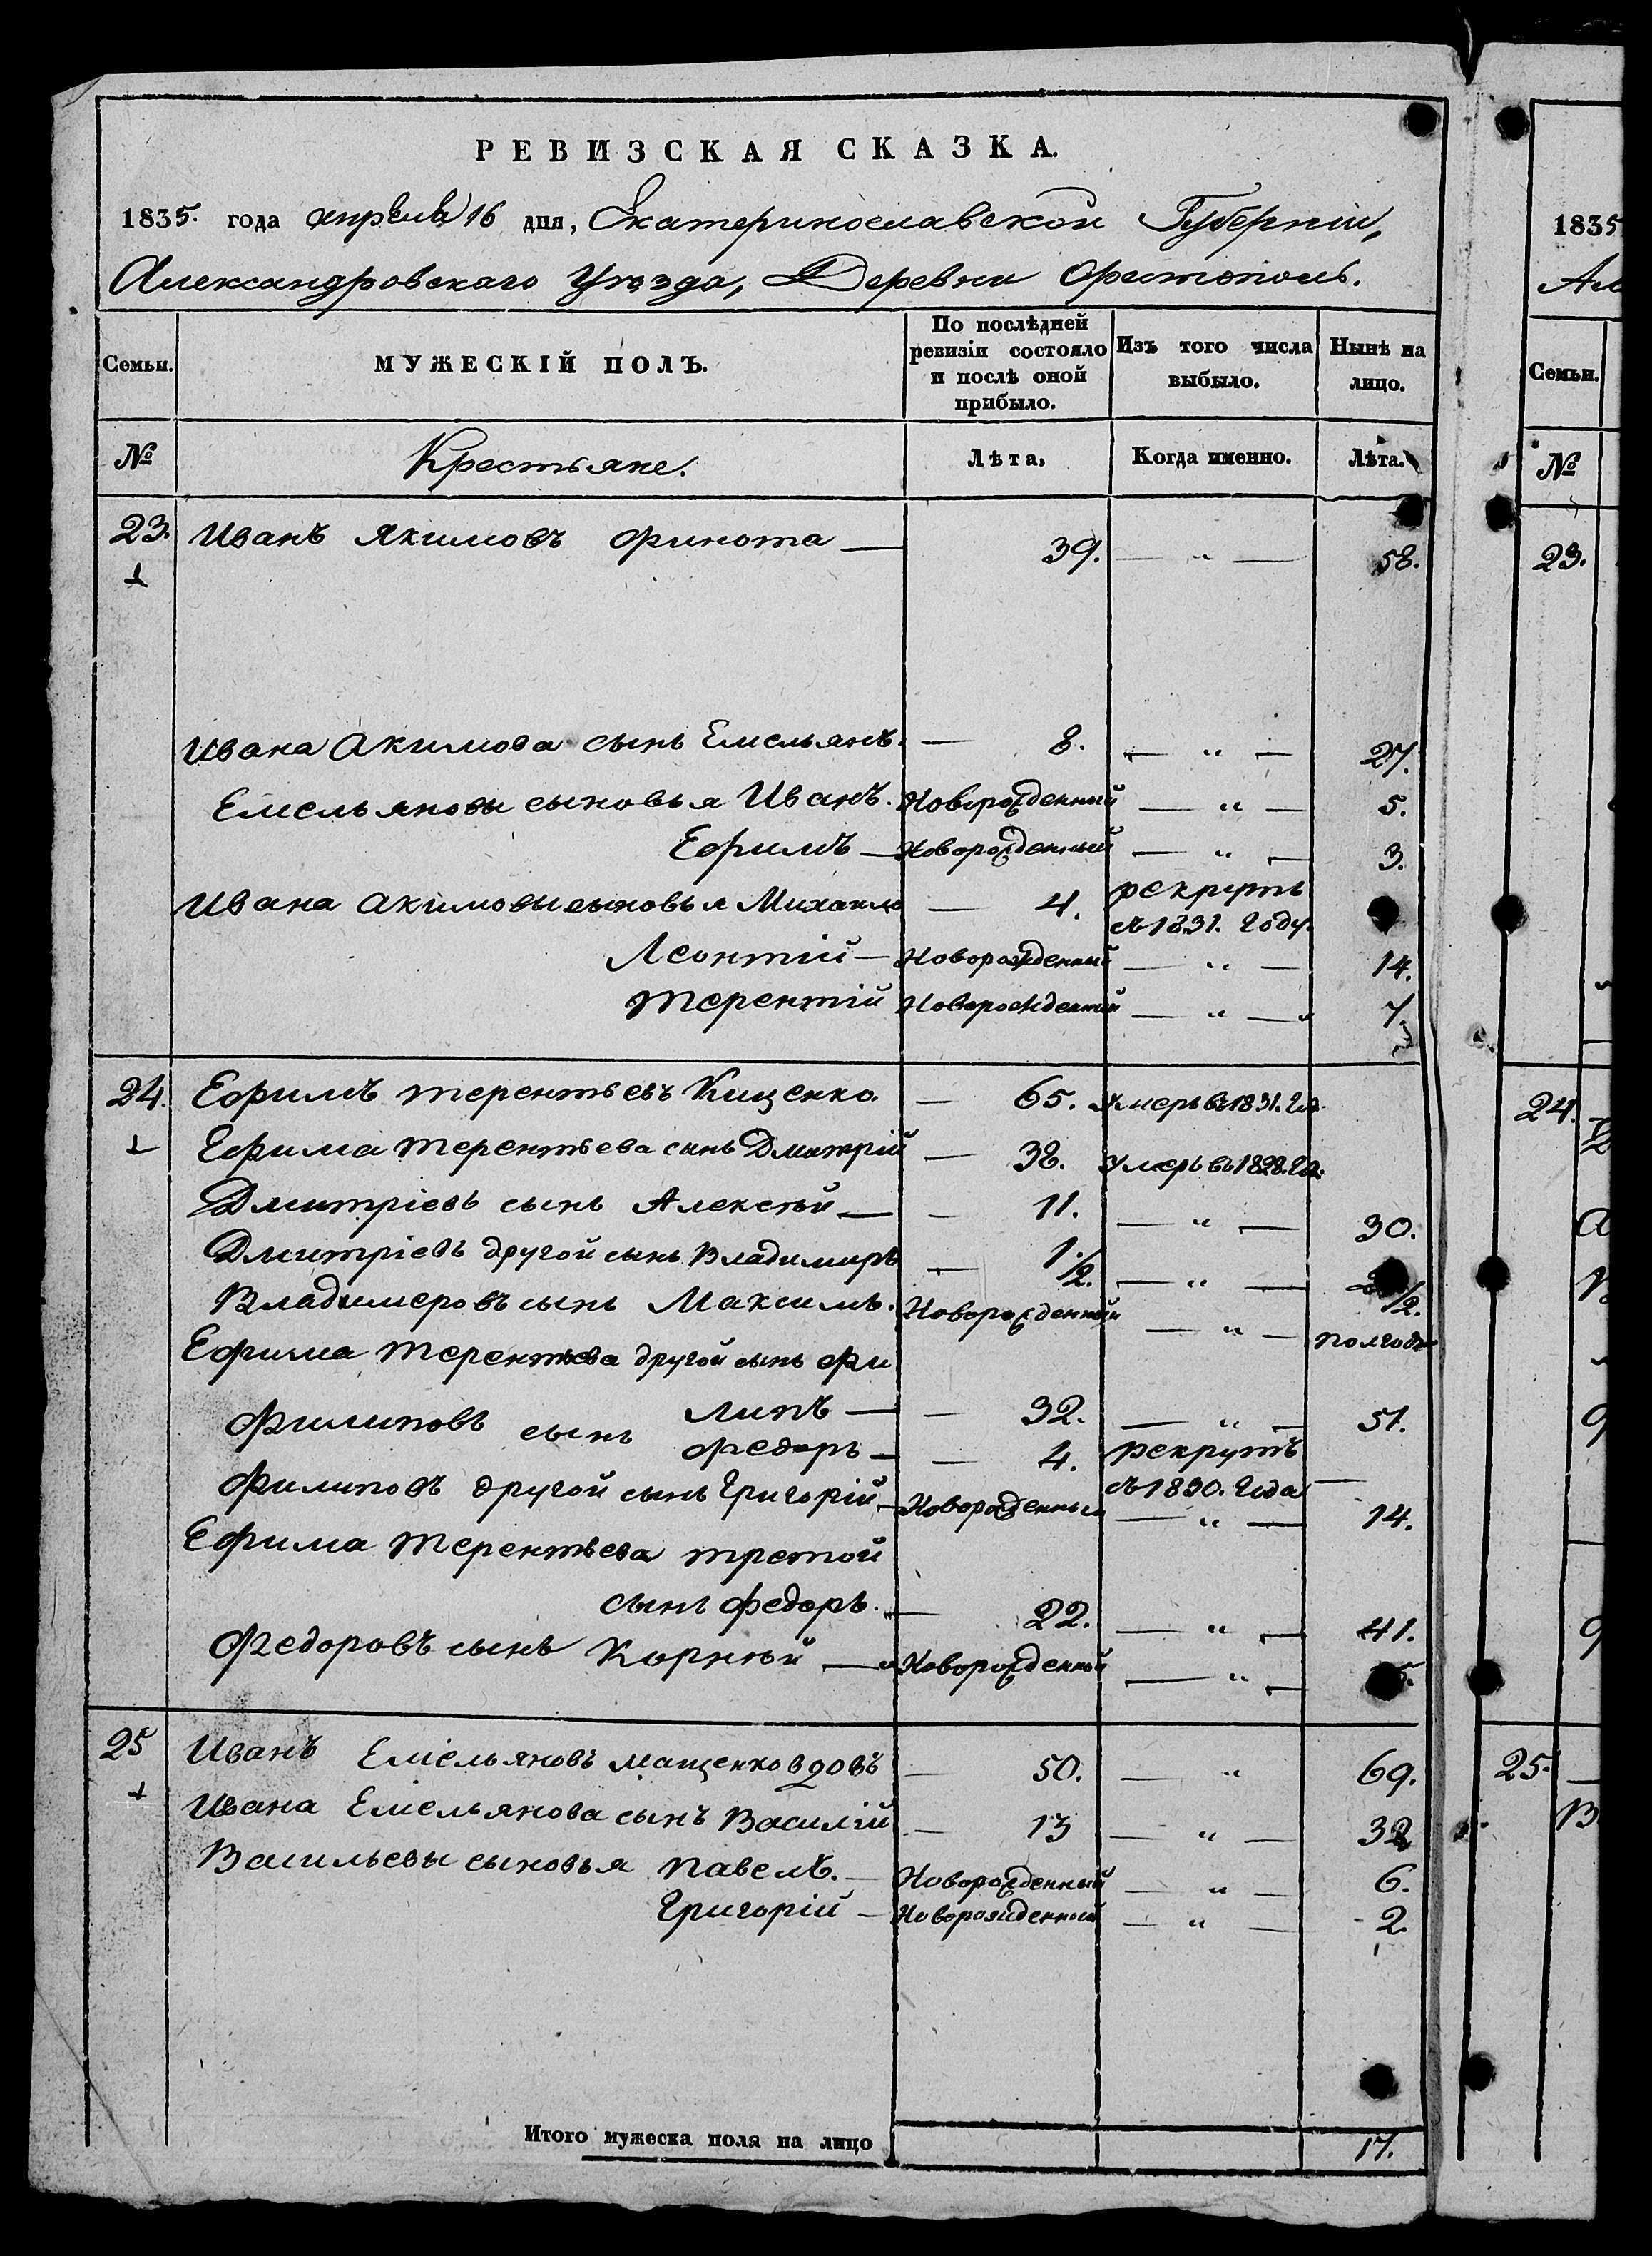 РЕВИЗСКАЯ СКАЗКА.
1835. года апреля 16 дня, Екатеринославской Губерніи,
Александровскаго Уезда, Деревни Орестополь.
Семьи. МУЖЕСКІЙ ПОЛЪ. По послѣдней ревизіи состояло и послѣ оной прибыло. Изъ того числа выбыло. Нынѣ на лицо.
№ Крестьяне. Лѣта. Когда именно. Лѣта.
23. Иванъ Якимовъ Финота — 39. — " — 58.
Ивана Акимова сынъ Емельянъ. — 8. — " — 27.
Емельяновы сыновья Иванъ. Новорожденный — " — 5.
Ефимъ — Новорожденный — " — 3.
Ивана Акимовы сыновья Михаило — 4. рекрутъ
съ 1831. году.
Леонтій — Новорожденный — " — 14.
Терентій Новорожденный — " — 7.
24. Ефимъ Терентьевъ Кищенко. — 65. Умеръ въ 1831. год.
Ефима Терентьева сынъ Дмитрій — 38. Умеръ въ 1828. год.
Дмитріевъ сынъ Алексѣй — — 11. — " — 30.
Дмитріевъ другой сынъ Владимиръ — 1 1/2. — " — 1/2.
Владимеровъ сынъ Максимъ. Новорожденный — " — полгода
Ефима Терентьева другой сынъ Фи
липъ — — 32. — " — 51.
Филиповъ сынъ Федоръ — — 4. рекрутъ
съ 1830. года —
Филиповъ другой сынъ Григорій — Новорожденный — " — 14.
Ефима Терентьева третой
сынъ Федоръ. — 22. — " — 41.
Федоровъ сынъ Корнѣй — Новорожденный — " — 5.
25 Иванъ Емельяновъ Мащенко вдовъ — 50. — " 69.
Ивана Емельянова сынъ Василій — 13 — " — 32
Васильевы сыновья Павелъ. — Новорожденный — " — 6.
Григорій — Новорожденный — " — 2.
Итого мужеска пола на лицо 17.
1835
Ал
Семьи.
№
23.
24.
25.
В